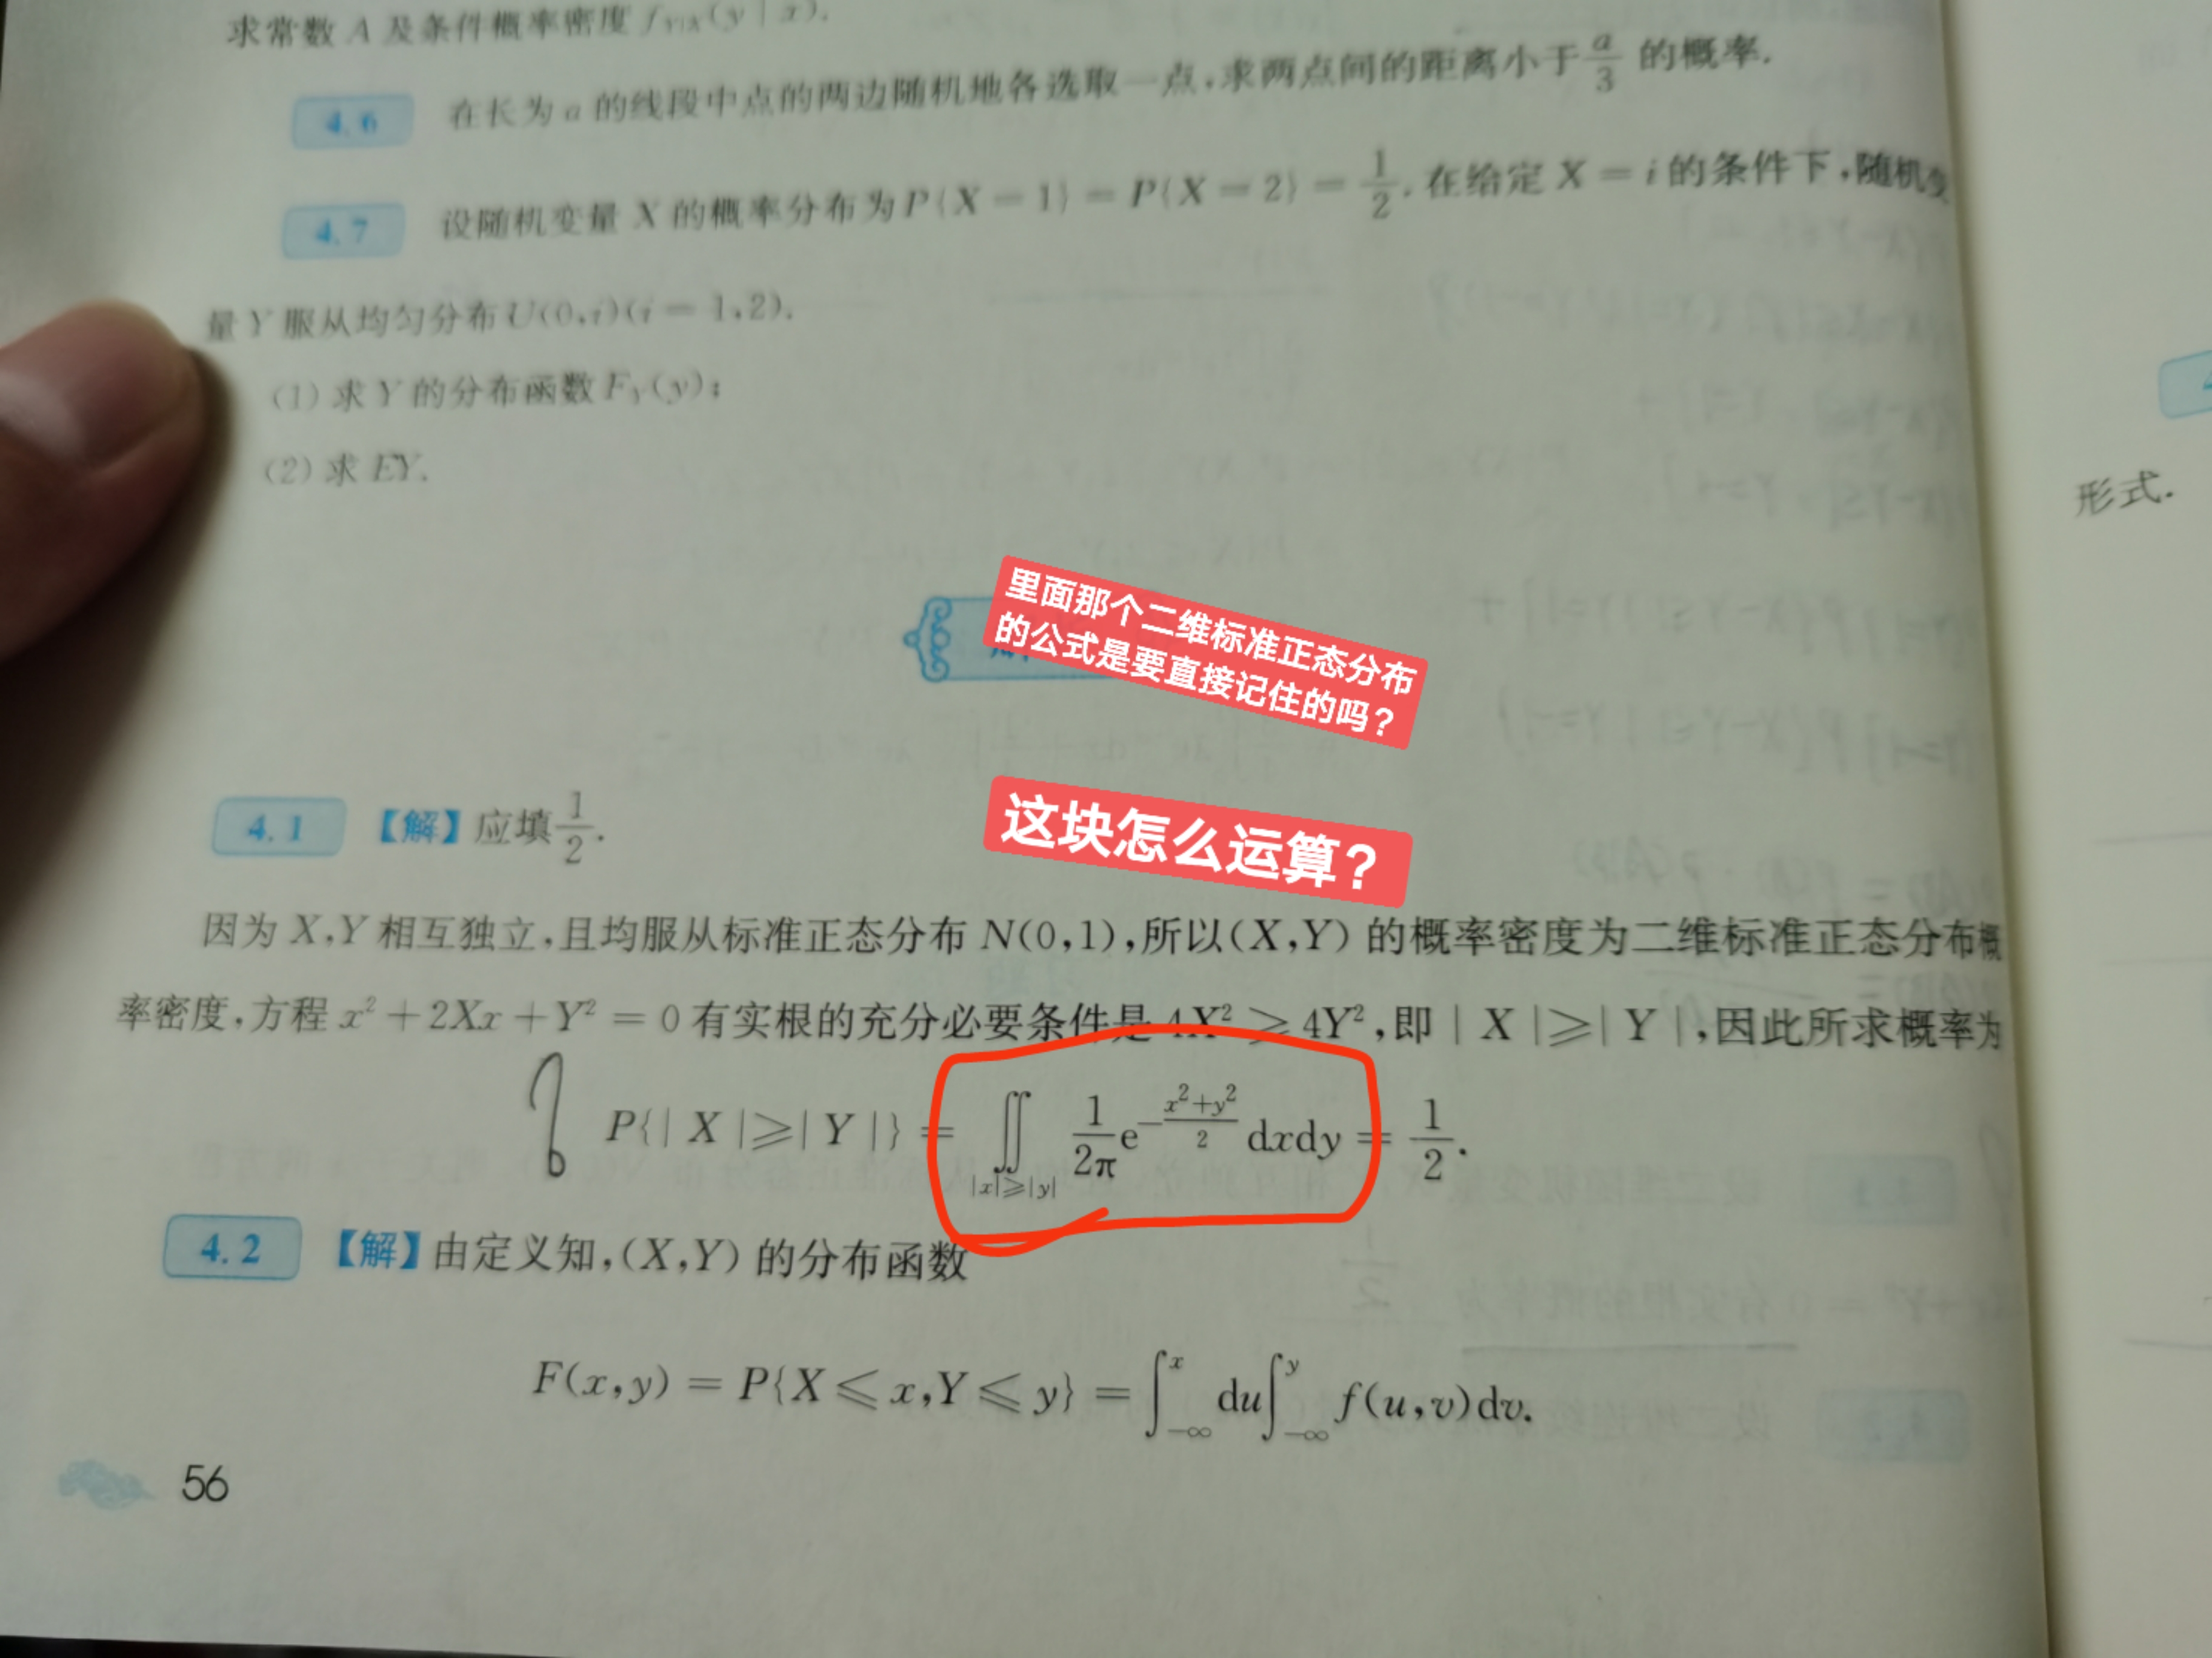 求常数 A 及条件概率密度 f_{Y|X}(y | x).
4.6 在长为 a 的线段中点的两边随机地各选取一点,求两点间的距离小于 a/3 的概率.
4.7 设随机变量 X 的概率分布为 P{X = 1} = P{X = 2} = 1/2. 在给定 X = i 的条件下,随机变
量 Y 服从均匀分布 U(0,i)(i = 1,2).
(1) 求 Y 的分布函数 F_Y(y);
(2) 求 EY.
形式.
里面那个二维标准正态分布
的公式是要直接记住的吗?
这块怎么运算?
4.1 【解】应填 1/2.
因为 X,Y 相互独立,且均服从标准正态分布 N(0,1),所以(X,Y) 的概率密度为二维标准正态分布概
率密度,方程 x² + 2Xx + Y² = 0 有实根的充分必要条件是 4X² ⩾ 4Y²,即 | X |⩾| Y |,因此所求概率为
P{| X |⩾| Y |} = ∬_{|x|⩾|y|} 1/(2π) e^{-(x²+y²)/2} dxdy = 1/2.
4.2 【解】由定义知,(X,Y) 的分布函数
F(x,y) = P{X ⩽ x,Y ⩽ y} = ∫_{-∞}^{x} du ∫_{-∞}^{y} f(u,v)dv.
56